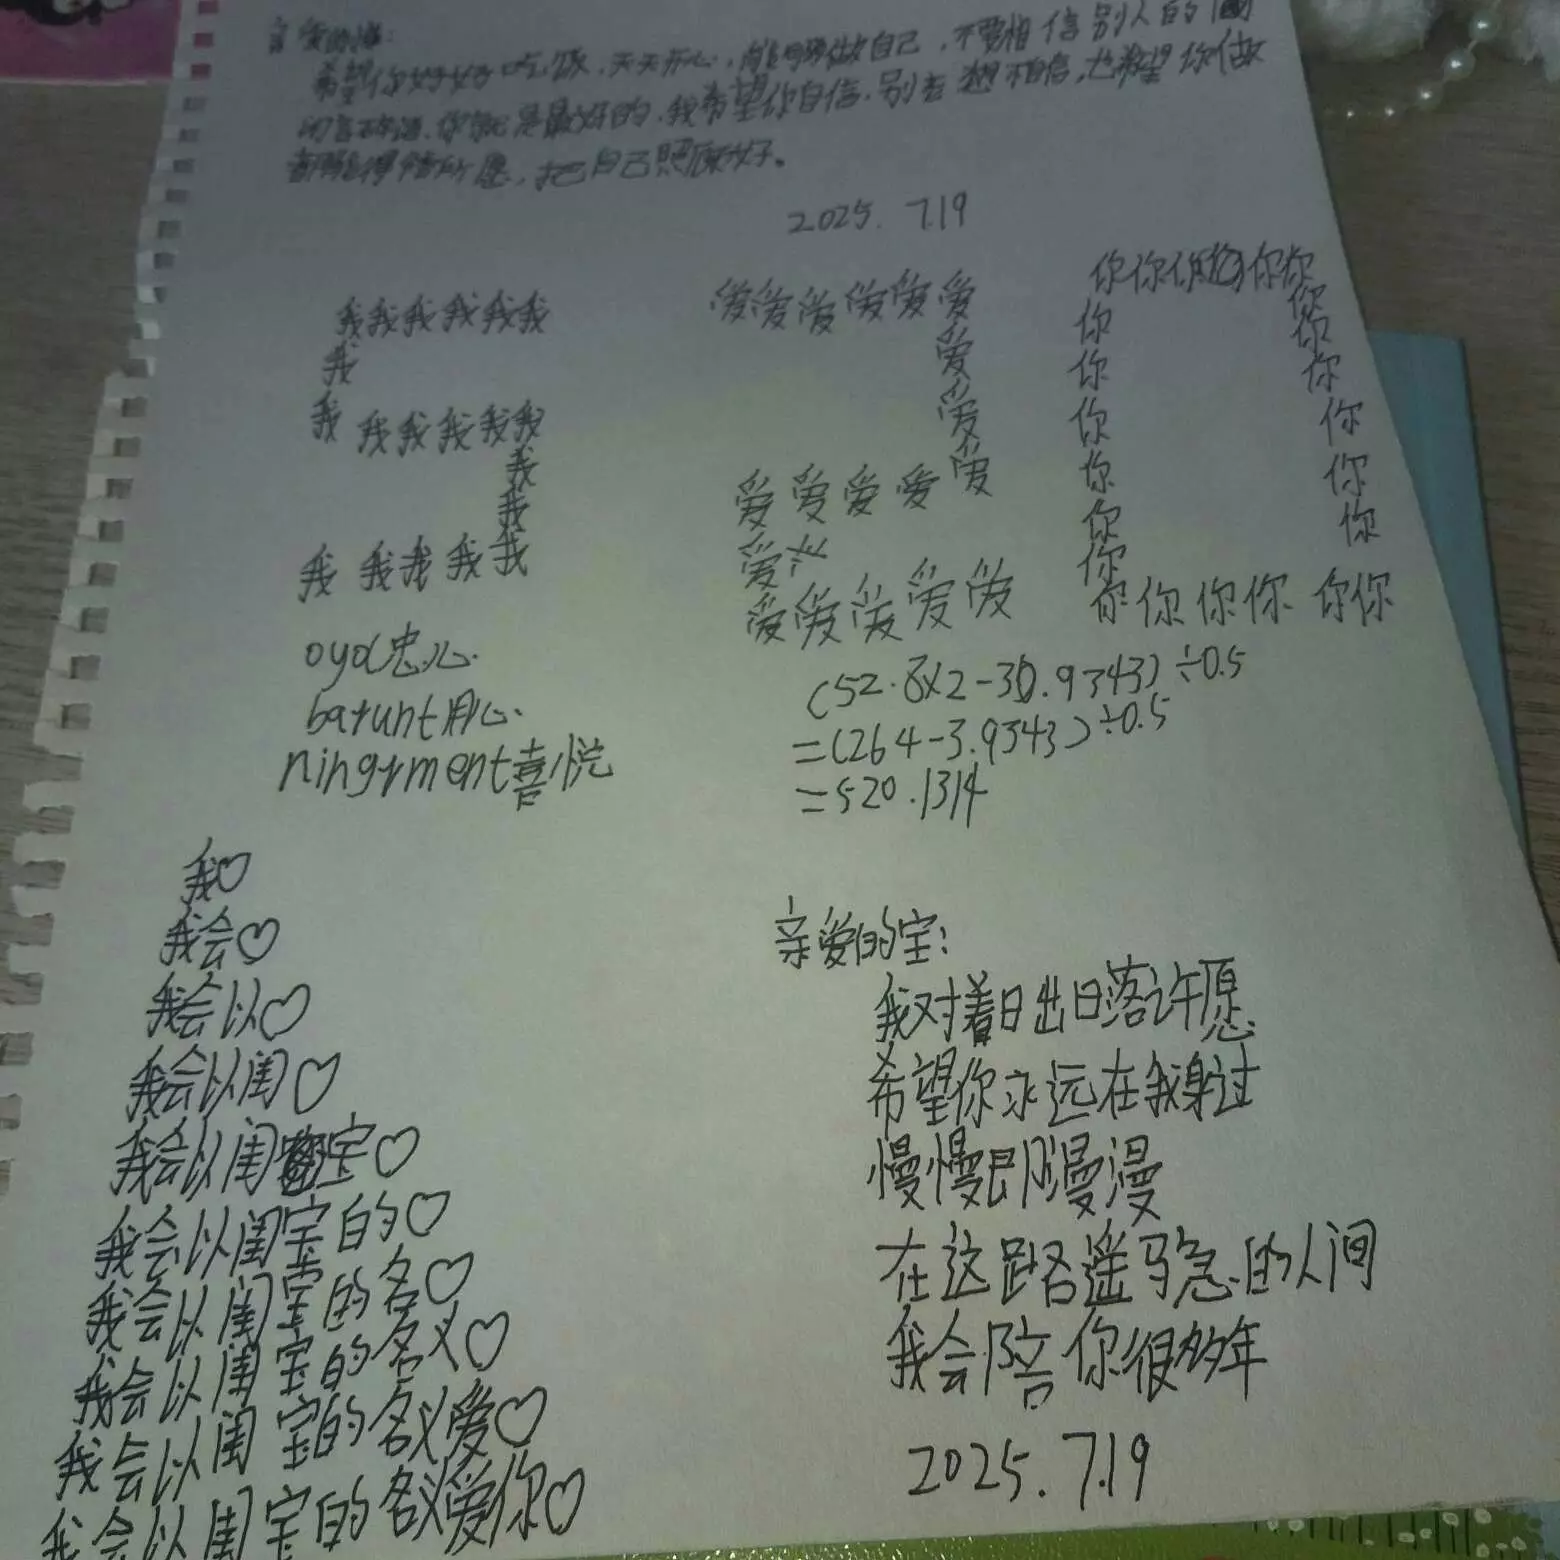 亲爱的
希望你好好吃饭，天天开心，能够做自己，不要相信别人的
你就是最好的，我希望你自信，别去想不自信，也希望你做
都能得偿所愿，把自己照顾好。
2025. 7.19
我我我我我我
我
我 我我我我我
我
我
我 我我我我
爱爱爱爱爱爱
爱
爱
爱
爱爱爱爱
爱
爱爱爱爱爱
你你你你你你
你 你
你 你
你 你
你 你
你 你
你 你
你你你你 你你
oyd忠心.
barunt用心.
ningrment喜悦
(52.8×2-30.9343)÷0.5
=(264-3.9343)÷0.5
=520.1314
我♡
我会♡
我会以♡
我会以闺♡
我会以闺宝♡
我会以闺宝的♡
我会以闺宝的名♡
我会以闺宝的名义♡
我会以闺宝的名义爱♡
我会以闺宝的名义爱你♡
亲爱的宝:
我对着日出日落许愿
希望你永远在我身过
慢慢即漫漫
在这路遥马急的人间
我会陪你很多年
2025. 7.19